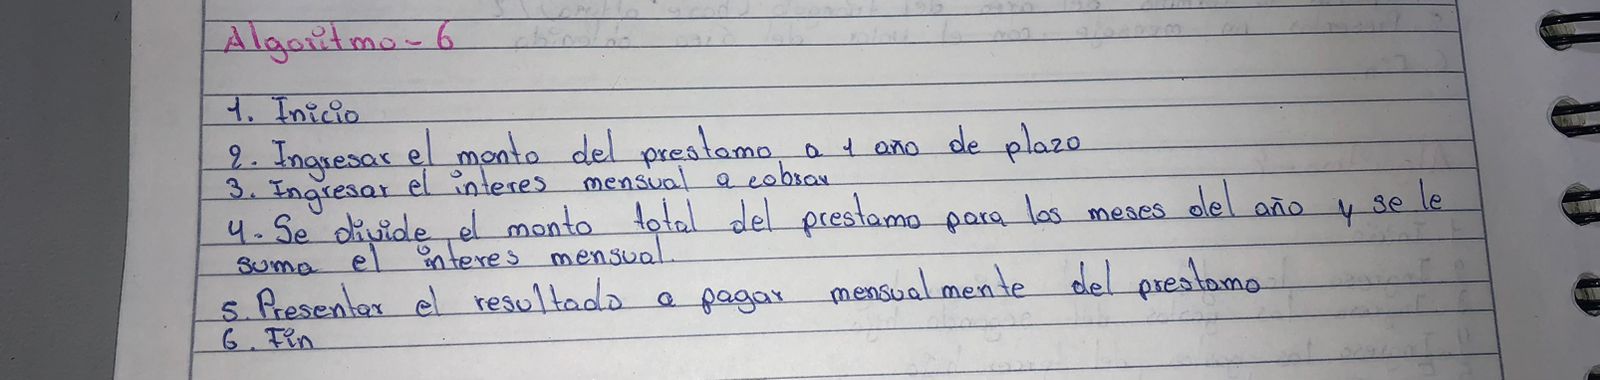 Algoritmo - 6
1. Inicio
2. Ingresar el monto del prestamo a 1 año de plazo
3. Ingresar el interes mensual a cobrar
4. Se divide el monto total del prestamo para los meses del año y se le
suma el interes mensual.
5. Presentar el resultado a pagar mensualmente del prestamo
6. Fin